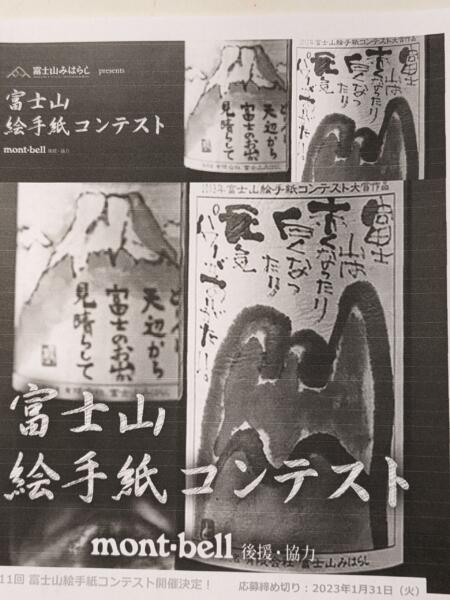 富士山みはらし presents
富士山
絵手紙コンテスト
mont-bell 後援・協力
天辺から
富士のお山
見晴らして
富士
山は
赤くなったり
白くなっ
たり
2013年富士山絵手紙コンテスト大賞作品
富士
山は
赤くなったり
白くなっ
たり
天辺から
富士のお山
見晴らして
富士山
絵手紙コンテスト
mont-bell 後援・協力
有限会社 富士山みはらし
11回 富士山絵手紙コンテスト開催決定！
応募締め切り：2023年1月31日（火）